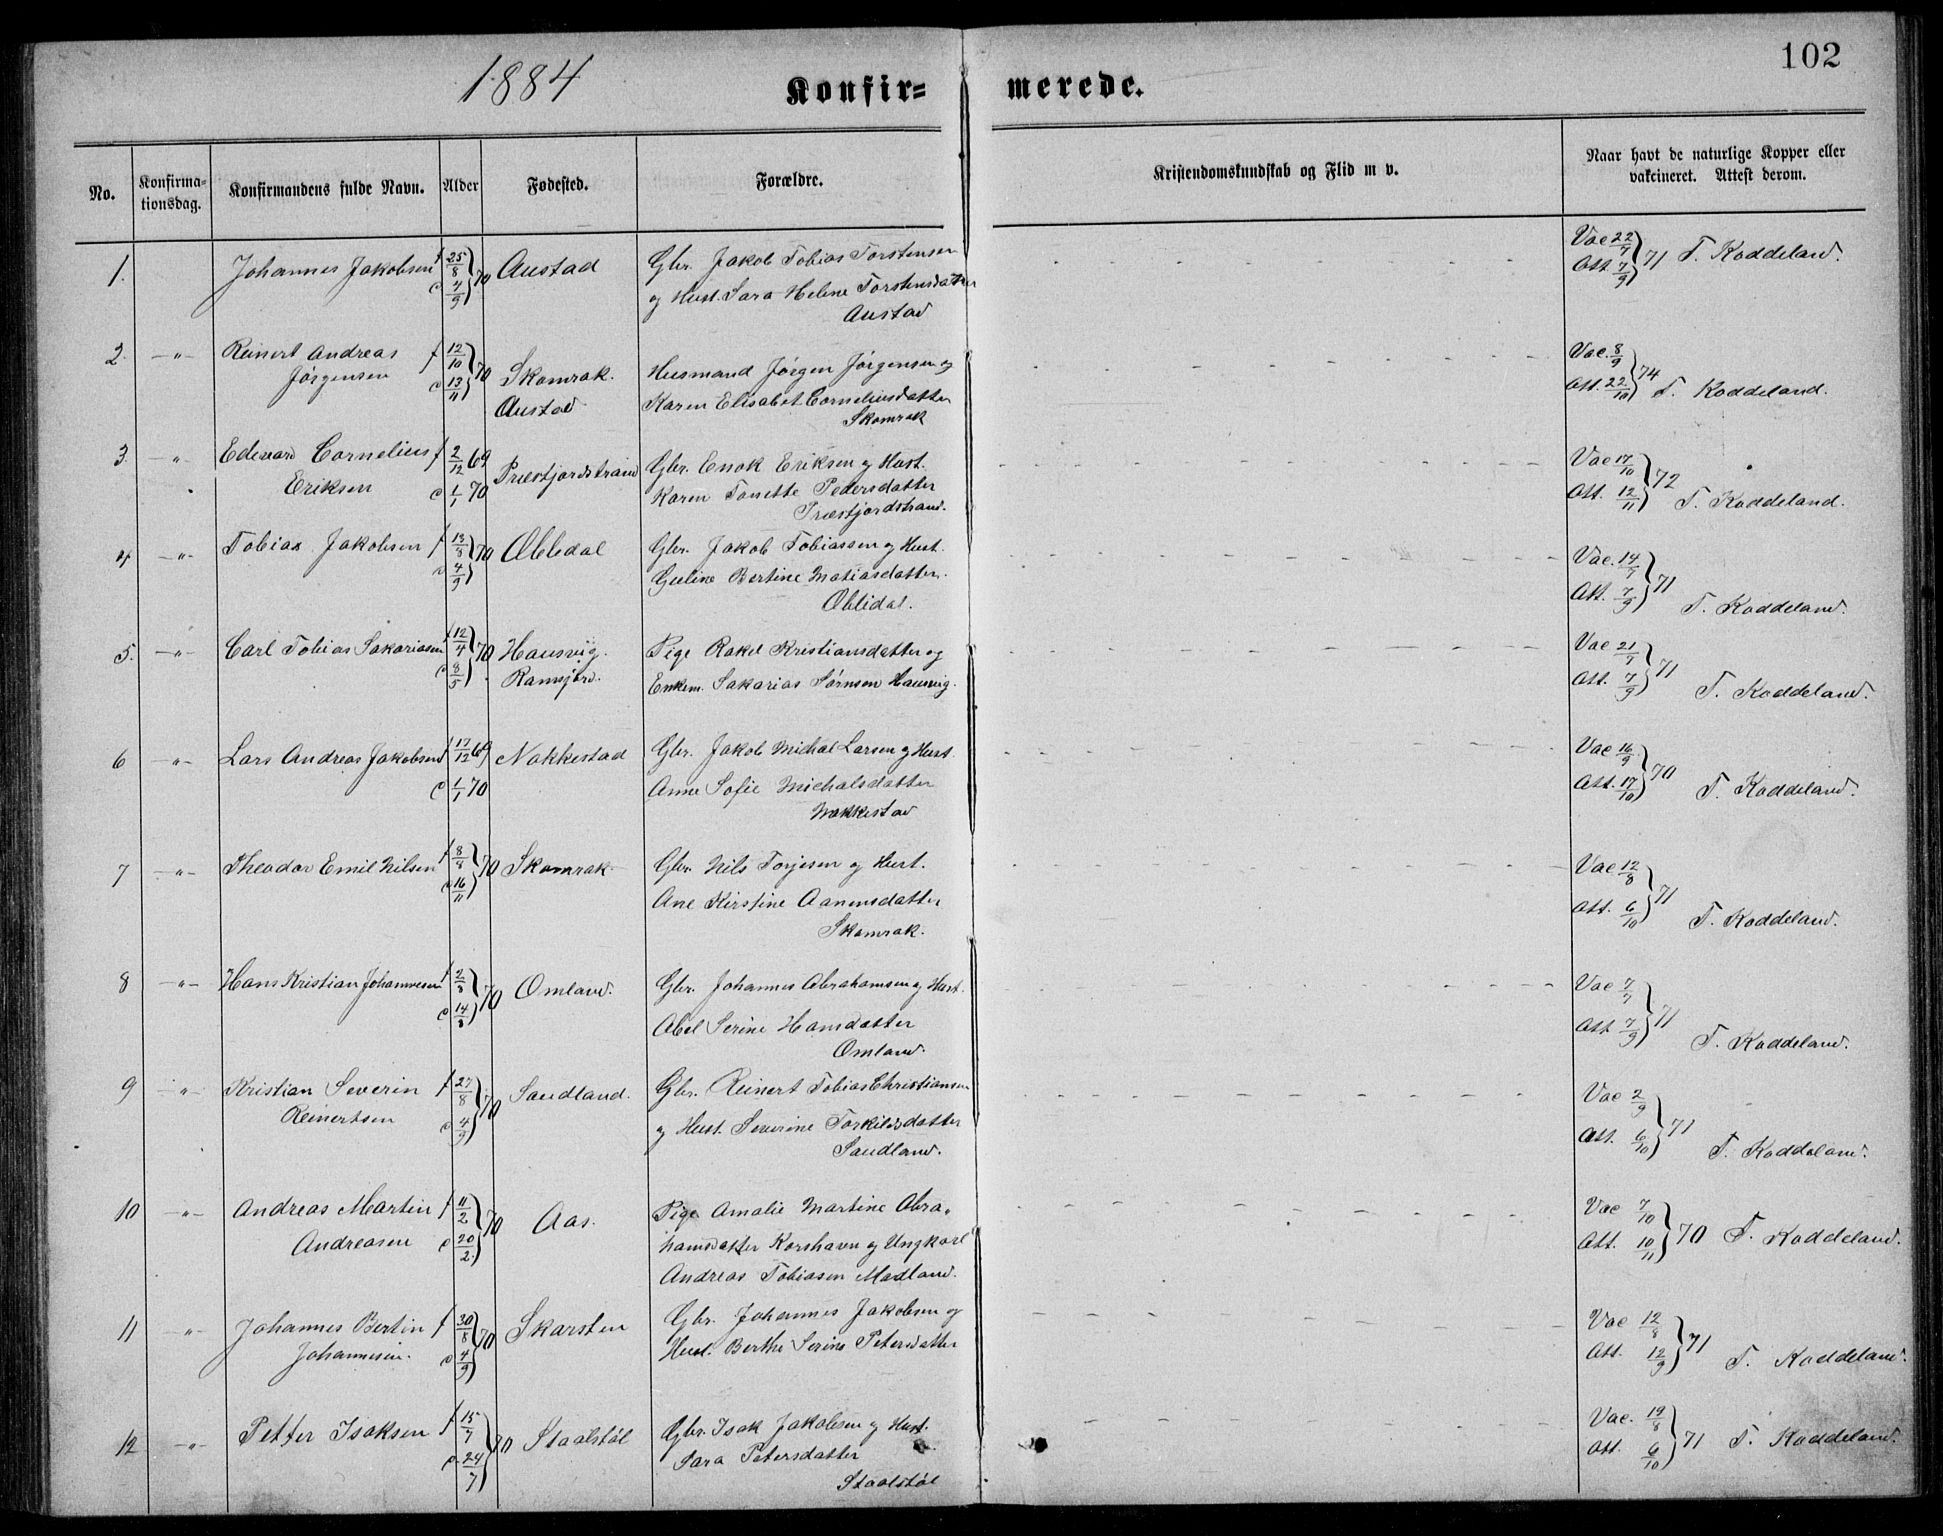 102
1884
Konfir=
merede.
No.
Konfirma-
tionsdag.
Konfirmandens fulde Navn.
Alder
Fødested.
Forældre.
Kristendomskundskab og Flid m v.
Naar havt de naturlige Kopper eller
vakcineret. Attest derom.
1. Johannes Jakobsen f 25/8 70 Austad Gbr. Jakob Tobias Torstensen Vac 22/7 71 T. Koddeland.
c 4/9 og Hust. Sara Helene Torstensdatter Att. 7/9
Austad
2. -"- Reinert Andreas f 12/10 70 Skomrak. Husmand Jørgen Jørgensen og Vac. 8/9 74 T. Koddeland.
Jørgensen c 13/11 Austad Karen Elisabet Corneliusdatter Att. 22/10
Skomrak
3. -"- Edevard Cornelius f 2/12 69 Præstjordstrand Gbr. Enok Eriksen og Hust. Vac 17/10 72
Eriksen c 1/1 70 Karen Tonette Pedersdatter Att. 12/11 T. Koddeland.
Præstjordstrand.
4 -"- Tobias Jakobsen f 13/8 70 Øbledal Gbr. Jakob Tobiassen og Hust. Vac. 14/7 71
c 4/9 Guline Bertine Matiasdatter. Att. 7/9 T. Koddeland.
Øblidal.
5. -"- Carl Tobias Sakariasen f 12/4 70 Hausvig. Pige Rakel Kristiansdatter og Vac 21/7 71
c 8/5 Ramsjørd. Enkem. Sakarias Sørnsen Hausvig. Att. 7/9 T. Koddeland.
6 -"- Lars Andreas Jakobsen f 17/12 69 Nakkestad Gbr. Jakob Michal Larsen og Hust. Vac 16/9 70
c 1/1 70 Anne Sofie Michalsdatter Att. 17/10 T. Koddeland.
Nakkestad
7 -"- Theodor Emil Nilsen f 8/8 70 Skomrak. Gbr. Nils Torjesen og Hust. Vac 12/8 71
c 16/11 Ane Kirstine Aanensdatter Att. 6/10 T. Koddeland.
Skomrak.
8 -"- Hans Kristian Johannesen f 2/8 70 Omland. Gbr. Johannes Abrahamsen og Hust. Vac 7/7 71
c 14/8 Abel Serine Hansdatter Att 7/9 T. Koddeland.
Omland.
9 -"- Kristian Severin f 27/8 70 Sandland. Gbr. Reinert Tobias Christiansen Vac 2/9 71
Reinertsen c 4/9 og Hust. Severine Torkildsdatter Att. 6/10 T. Koddeland.
Sandland.
10 -"- Andreas Martin f 11/2 70 Aas. Pige Amalie Martine Abra- Vac 7/10 70 T. Koddeland.
Andreasen c 20/2 hamsdatter Korshavn og Ungkarl Att. 10/11
Andreas Tobiasen Madland.
11 -"- Johannes Bertin f 30/8 70 Skarsten Gbr. Johannes Jakobsen og Vac 12/8 71
Johannesen. c 4/9 Hust. Berthe Serine Petersdatter Att. 12/9 T. Koddeland.
12 -"- Petter Isaksen f 15/7 70 Staalstøl Gbr. Isak Jakobsen og Hust. Vac. 19/8 71 T. Koddeland.
c 24/7 Sara Petersdatter Att. 6/10
Staalstøl